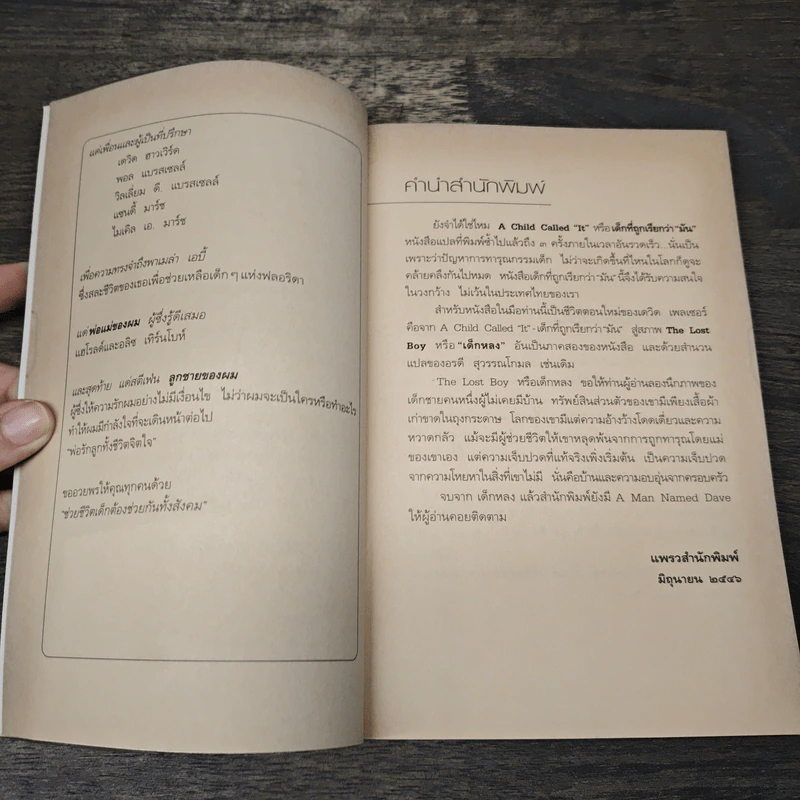 แด่เพื่อนและผู้เป็นที่ปรึกษา
เดวิด ฮาวเวิร์ด
พอล แบรสเซลล์
วิลเลี่ยม ดี. แบรสเซลล์
แซนดี้ มาร์ช
ไมเคิล เอ. มาร์ช
เพื่อความทรงจำถึงพาเมล่า เอบี้
ซึ่งสละชีวิตของเธอเพื่อช่วยเหลือเด็ก ๆ แห่งฟลอริดา
แด่ พ่อแม่ของผม ผู้ซึ่งรู้ดีเสมอ
แฮโรลด์และอลิซ เทิร์นโบห์
และสุดท้าย แด่สตีเฟ่น ลูกชายของผม
ผู้ซึ่งให้ความรักผมอย่างไม่มีเงื่อนไข ไม่ว่าผมจะเป็นใครหรือทำอะไร
ทำให้ผมมีกำลังใจที่จะเดินหน้าต่อไป
“พ่อรักลูกทั้งชีวิตจิตใจ”
ขออวยพรให้คุณทุกคนด้วย
“ช่วยชีวิตเด็กต้องช่วยกันทั้งสังคม”
คำนำสำนักพิมพ์
ยังจำได้ใช่ไหม A Child Called “It” หรือเด็กที่ถูกเรียกว่า“มัน”
หนังสือแปลที่พิมพ์ซ้ำไปแล้วถึง ๓ ครั้งภายในเวลาอันรวดเร็ว...นั่นเป็น
เพราะว่าปัญหาการทารุณกรรมเด็ก ไม่ว่าจะเกิดขึ้นที่ไหนในโลกก็ดูจะ
คล้ายคลึงกันไปหมด หนังสือเด็กที่ถูกเรียกว่า“มัน”นี้จึงได้รับความสนใจ
ในวงกว้าง ไม่เว้นในประเทศไทยของเรา
สำหรับหนังสือในมือท่านนี้เป็นชีวิตตอนใหม่ของเดวิด เพลเซอร์
คือจาก A Child Called “It”-เด็กที่ถูกเรียกว่า“มัน” สู่สภาพ The Lost
Boy หรือ“เด็กหลง” อันเป็นภาคสองของหนังสือ และด้วยสำนวน
แปลของอรดี สุวรรณโกมล เช่นเดิม
The Lost Boy หรือเด็กหลง ขอให้ท่านผู้อ่านลองนึกภาพของ
เด็กชายคนหนึ่งผู้ไม่เคยมีบ้าน ทรัพย์สินส่วนตัวของเขามีเพียงเสื้อผ้า
เก่าขาดในถุงกระดาษ โลกของเขามีแต่ความอ้างว้างโดดเดี่ยวและความ
หวาดกลัว แม้จะมีผู้ช่วยชีวิตให้เขาหลุดพ้นจากการถูกทารุณโดยแม่
ของเขาเอง แต่ความเจ็บปวดที่แท้จริงเพิ่งเริ่มต้น เป็นความเจ็บปวด
จากความโหยหาในสิ่งที่เขาไม่มี นั่นคือบ้านและความอบอุ่นจากครอบครัว
จบจาก เด็กหลง แล้วสำนักพิมพ์ยังมี A Man Named Dave
ให้ผู้อ่านคอยติดตาม
แพรวสำนักพิมพ์
มิถุนายน ๒๕๔๖